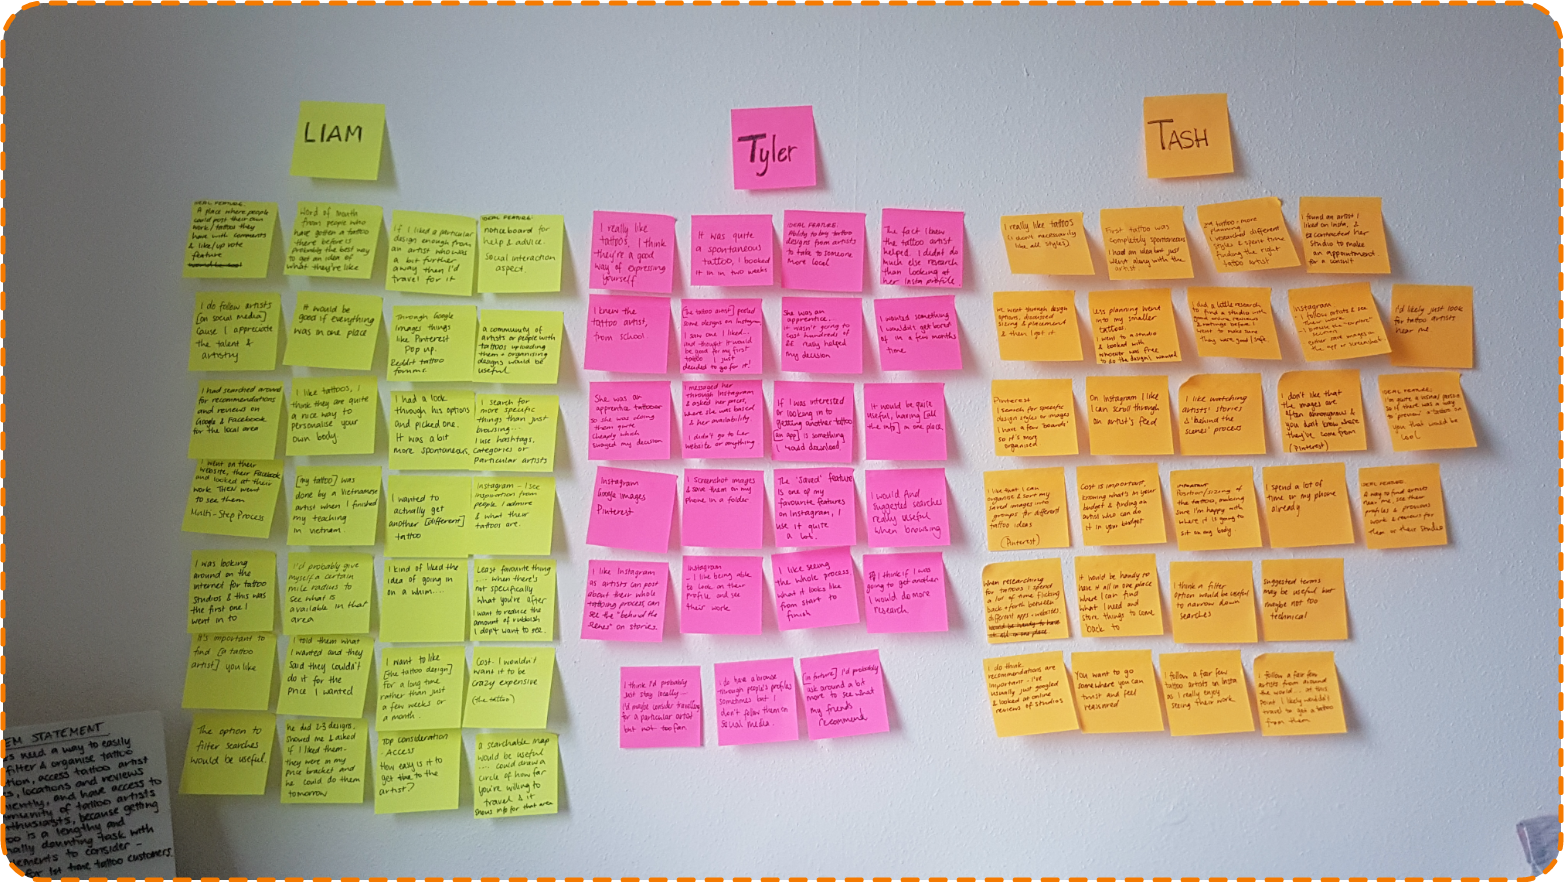 LIAM
IDEAL FEATURE:
A place where people
could post their own
work/tattoo they
have with comments
& like/up vote
feature
Word of mouth
from people who
have gotten a tattoo
there before is
probably the best way
to get an idea of
what they're like
If I liked a particular
design enough from
an artist who was
a bit further
away than I'd
travel for it
IDEAL FEATURE:
noticeboard for
help & advice.
Social interaction
aspect
I do follow artists
[on social media]
cause I appreciate
the talent &
artistry
It would be
good if everything
was in one place
Through Google
Images things
like Pinterest
Pop up.
Reddit tattoo
forums.
a community of
artists or people with
tattoos uploading
them & organising
designs would be
useful
I had searched around
for recommendations
and reviews on
Google & Facebook
for the local area
I like tattoos, I
think they are quite
a nice way to
personalise your
own body
I had a look
through his options
and picked one.
It was a bit
more spontaneous.
I search for
more specific
things than just
browsing...
I use hashtags,
categories or
particular artists
I went on their
website, their Facebook
and looked at their
work THEN went
to see them
Multi-Step Process
[my tattoo] was
done by a Vietnamese
artist when I finished
my teaching
in Vietnam.
I wanted to
actually get
another [different]
tattoo
Instagram - I see
inspiration from
people I admire
& what their
tattoos are
I was looking
around on the
internet for tattoo
studios & this was
the first one I
went in to
I'd probably give
myself a certain
mile radius to
see what is
available in that
area
I kind of liked the
idea of going in
on a whim....
Least favourite thing
.... when there's
not specifically
what you're after
I want to reduce the
amount of rubbish
I don't want to see.
It's important to
find [a tattoo
artist] you like
I told them what
I wanted and they
said they couldn't
do it for the
price I wanted
I want to like
[the tattoo design]
for a long time
rather than just
a few weeks or
a month.
Cost - I wouldn't
want it to be
crazy expensive
(the tattoo)
The option to
filter searches
would be useful.
he did 2-3 designs,
showed me & asked
if I liked them -
they were in my
price bracket and
he could do them
tomorrow
Top consideration
- Access
How easy is it to
get to the
artist?
a searchable map
would be useful
.... could draw a
circle of how far
you're willing to
travel & it
shows info for that area
Tyler
I really like
tattoos, I think
they're a good
way of expressing
yourself
It was quite
a spontaneous
tattoo, I booked
it in in two weeks
IDEAL FEATURE:
Ability to try tattoo
designs from artists
to take to someone
more local
The fact I knew
the tattoo artist
helped. I didnt do
much else research
than looking at
her insta profile.
I knew the
tattoo artist,
from school
[the tattoo artist] posted
some designs on Instagram,
I saw one I liked...
and thought it would
be good for my first
tattoo I just
decided to go for it!
She was an
apprentice...
it wasn't going to
cost hundreds of
££ really helped
my decision
I wanted something
I wouldn't get bored
of in a few months
time
She was an
apprentice tattooer
so she was doing
them quite
cheaply which
swayed my decision
I messaged her
through Instagram
& asked her price,
where she was based
& her availability.
I didn't go to her
website or anything
If I was interested
or looking in to
getting another tattoo
[an app] is something
I would download.
It would be quite
useful, having [all
the info] in one place,
Instagram
Google images
Pinterest
I screenshot images
& save them on my
phone in a folder
The 'Saved' feature
is one of my
favourite features
on Instagram, I
use it quite
a lot.
I would find
suggested searches
really useful
when browsing
I like Instagram
as artists can post
about their whole
tattooing process can
see the "behind the
scenes" on stories.
Instagram
- I like being able
to look on their
profile and see
their work
I like seeing
the whole process,
what it looks like
from start to
finish
I think if I was
going to get another
I would do more
research
I think I'd probably
just stay locally -
I'd maybe consider travelling
for a particular artist
but not too far.
I do have a browse
through people's profiles
sometimes but I
don't follow them on
social media.
[in future] I'd probably
ask around a bit
more to see what
my friends
recommend
TASH
I really like tattoos
(I don't necessarily
like all styles)
First tattoo was
completely spontaneous
I had an idea but just
went along with the
artist
I found an artist I
liked on insta, &
her studio to make
an appointment
for a consult
I'd likely just look
for tattoo artists
near me
Less planning went
into my smaller
tattoos.
I went to a studio
& booked with
whoever was free
to do the design I wanted
Pinterest
I search for specific
design styles or images
I have a few 'boards'
so it's more
organised
On Instagram I like
I can scroll through
an artist's feed
I like watching
artists' stories
& 'behind the
scenes' process
I don't like that
the images are
often anonymous &
you don't know where
they're some from
(Pinterest)
I like that I can
organise & sort my
saved images into
groups for different
tattoo ideas
(Pinterest)
Cost is important,
knowing what's in your
budget & finding an
artist who can do
it in your budget
IMPORTANT
Position/sizing of
the tattoo, making
sure I'm happy with
where it is going to
sit on my body
I spend a lot of
time on my phone
already
When researching
for tattoos I spend
a lot of time flicking
back & forth between
different apps & websites.
It would be handy to
have it all in one place
where I can find
what I need and
store things to come
back to
I think a filter
option would be useful
to narrow down
searches
Suggested terms
may be useful but
maybe not too
technical
I do think
recommendations are
important - I've
usually just googled
& looked at online
reviews of studios
You want to go
somewhere you can
trust and feel
reassured
I follow a fair few
tattoo artists on Insta
as I really enjoy
seeing their work
I follow a fair few
artists from around
the world... at this
point I likely wouldn't
travel to get a tattoo
from them
EM STATEMENT
need a way to easily
filter & organise tattoo
tion, access tattoo artist
s, locations and reviews
iently, and have access to
mmunity of tattoo artists
nthusiasts, because getting
oo is a lengthy and
ally daunting task with
lements to consider -
for 1st time tattoo customers.